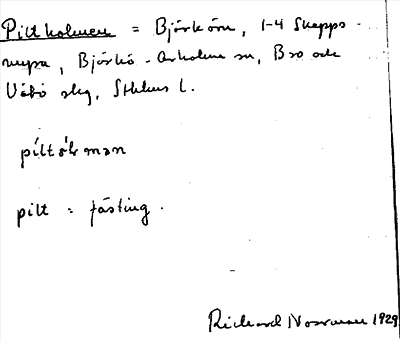 Piltholmen = Björkörn, 1-4 Skepps-
myra, Björkö-Arholma sn, Bro och
Vätö skg, Sthlms l.
piltåkman
pilt = fästing.
Richard Norrman 1929